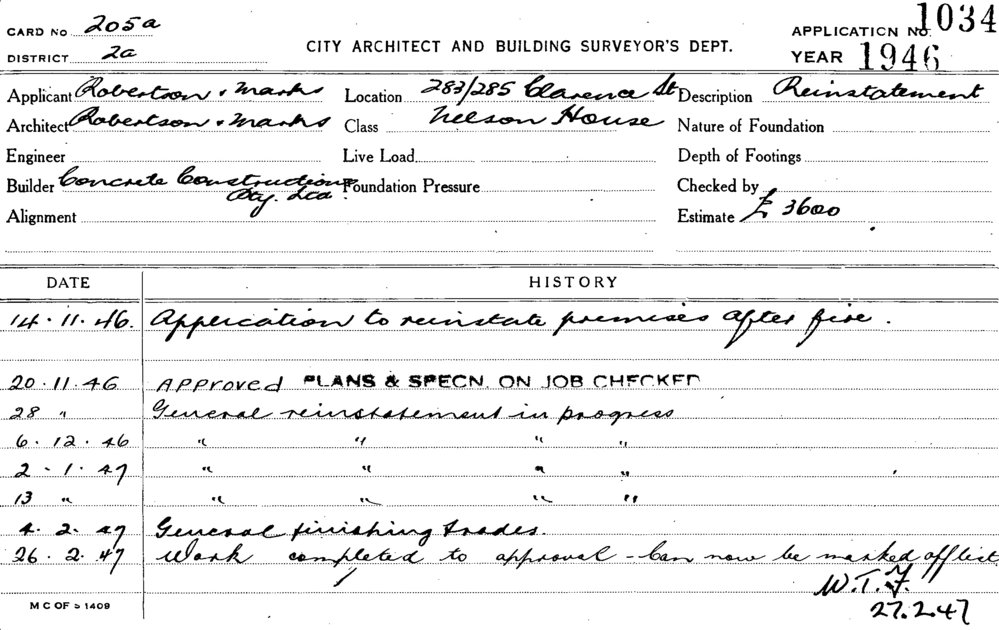 CARD No 205a
DISTRICT 2a
CITY ARCHITECT AND BUILDING SURVEYOR'S DEPT.
APPLICATION No. 1034
YEAR 1946
Applicant Robertson & Marks Location 283/285 Clarence St Description Reinstatement
Architect Robertson & Marks Class Nelson House Nature of Foundation
Engineer Live Load Depth of Footings
Builder Concrete Constructions Foundation Pressure Checked by
Pty. Ltd.
Alignment Estimate £ 3600
DATE HISTORY
14.11.46. Application to reinstate premises after fire.
20.11.46 Approved PLANS & SPECN. ON JOB CHECKED
28 " General reinstatement in progress
6.12.46 " " " "
2.1.47 " " " "
13 " " " " "
4.2.47 General finishing trades.
26.2.47 Work completed to approval - Can now be marked off list.
W.T.F.
27.2.47
M C OF S 1409